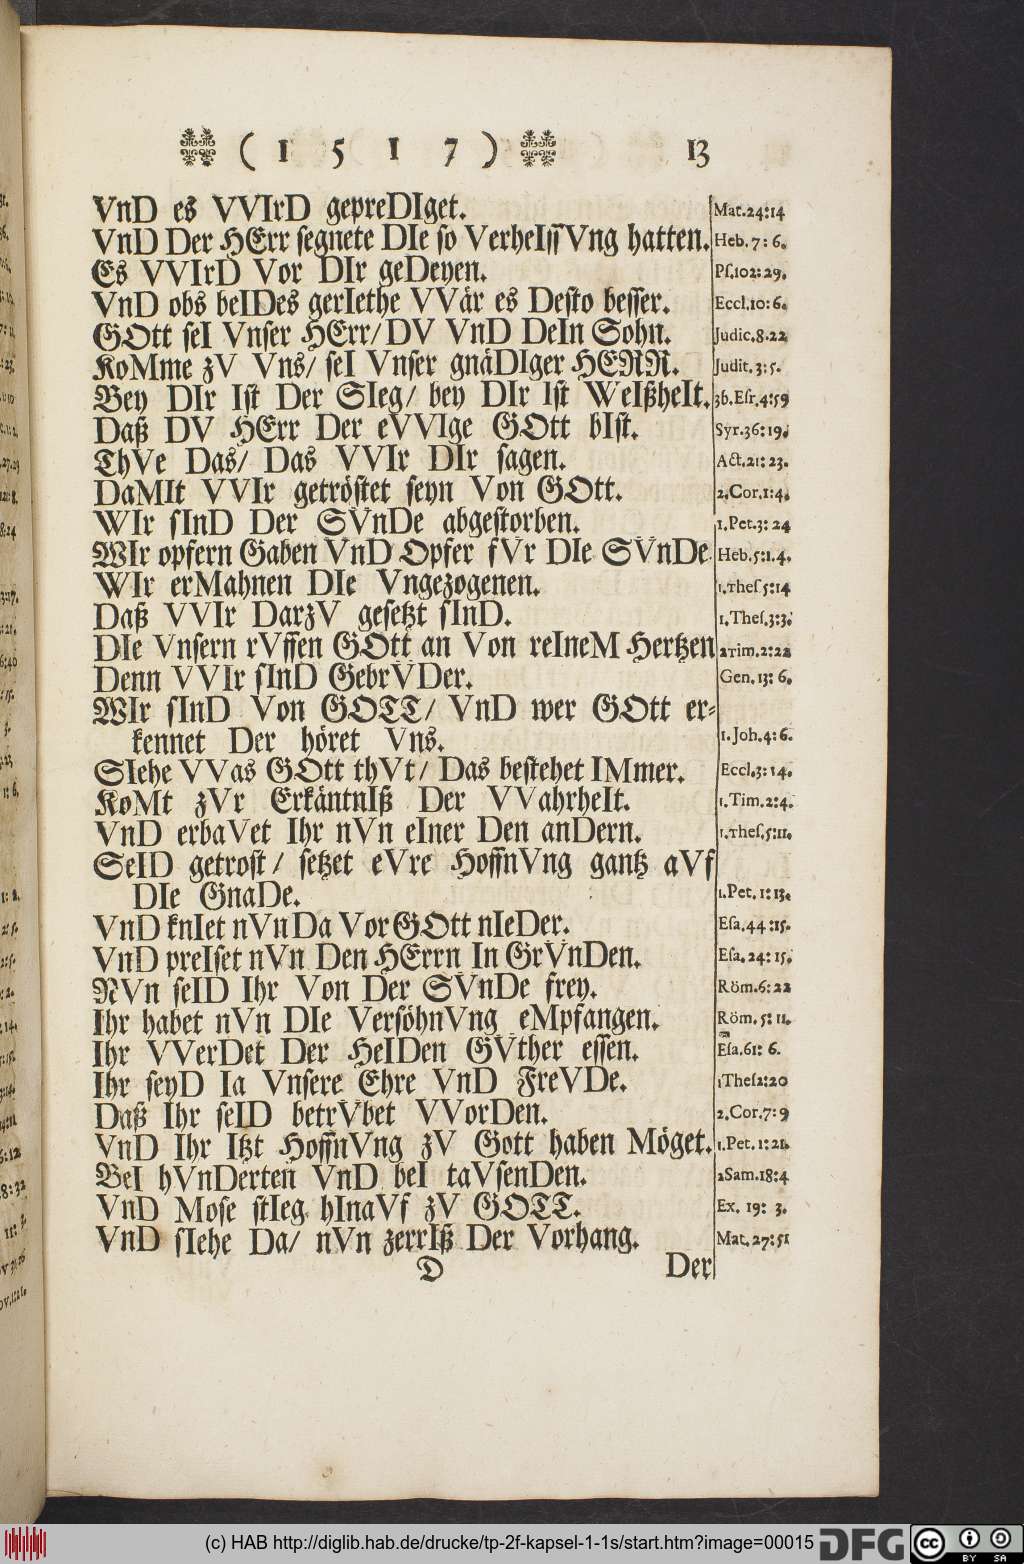 ( 1 5 1 7 ) 13
VnD es VVIrD gepreDIget. Mat.24:14
VnD Der HErr segnete DIe so VerheIssVng hatten. Heb. 7: 6.
Es VVIrD Vor DIr geDeyen. Ps.102:29.
VnD obs beIDes gerIethe VVär es Desto besser. Eccl.10:6.
GOtt seI Vnser HErr/ DV VnD DeIn Sohn. Judic.8.22
KoMme zV Vns/ seI Vnser gnäDIger HERR. Judit.3:5.
Bey DIr Ist Der SIeg/ bey DIr Ist WeIßheIt. 3b.Esr.4:59
Daß DV HErr Der eVVIge GOtt bIst. Syr.36:19.
ThVe Das/ Das VVIr DIr sagen. Act.21:23.
DaMIt VVIr getröstet seyn Von GOtt. 2.Cor.1:4.
WIr sInD Der SVnDe abgestorben. 1.Pet.3:24
WIr opfern Gaben VnD Opfer fVr DIe SVnDe. Heb.5:1.4.
WIr erMahnen DIe Vngezogenen. 1.Thes 5:14
Daß VVIr DarzV gesetzt sInD. 1.Thes.3:3.
DIe Vnsern rVffen GOtt an Von reIneM Hertzen 2Tim.2:22
Denn VVIr sInD GebrVDer. Gen.13:6.
WIr sInD Von GOTT/ VnD wer GOtt er-
kennet Der höret Vns. 1.Joh.4:6.
SIehe VVas GOtt thVt/ Das bestehet IMmer. Eccl.3:14.
KoMt zVr ErkäntnIß Der VVahrheIt. 1.Tim.2:4.
VnD erbaVet Ihr nVn eIner Den anDern. 1.Thes.5:11.
SeID getrost/ setzet eVre HoffnVng gantz aVf
DIe GnaDe. 1.Pet.1:13.
VnD knIet nVn Da Vor GOtt nIeDer. Esa.44:15.
VnD preIset nVn Den HErrn In GrVnDen. Esa.24:15.
NVn seID Ihr Von Der SVnDe frey. Röm.6:22
Ihr habet nVn DIe VersöhnVng eMpfangen. Röm.5:11.
Ihr VVerDet Der HeIDen GVther essen. Esa.61:6.
Ihr seyD Ia Vnsere Ehre VnD FreVDe. 1Thes2:20
Daß Ihr seID betrVbet VVorDen. 2.Cor.7:9
VnD Ihr Itzt HoffnVng zV Gott haben Möget. 1.Pet.1:21.
BeI hVnDerten VnD beI taVsenDen. 2Sam.18:4
VnD Mose stIeg hInaVf zV GOTT. Ex. 19: 3.
VnD sIehe Da/ nVn zerrIß Der Vorhang. Mat.27:51
D Der
(c) HAB http://diglib.hab.de/drucke/tp-2f-kapsel-1-1s/start.htm?image=00015 DFG cc BY SA